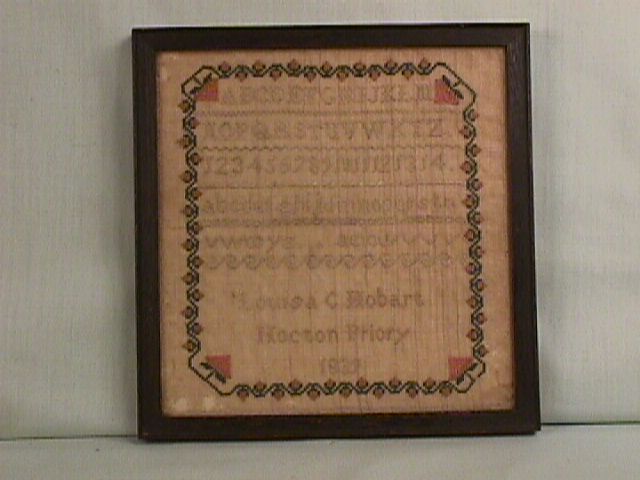 ABCDEFGHIJKLM
NOPQRSTUVWXYZ
1234567891011121314
abcdefghijklmnopqrstu
vwxyz
Louisa C. Hobart
Nocton Priory